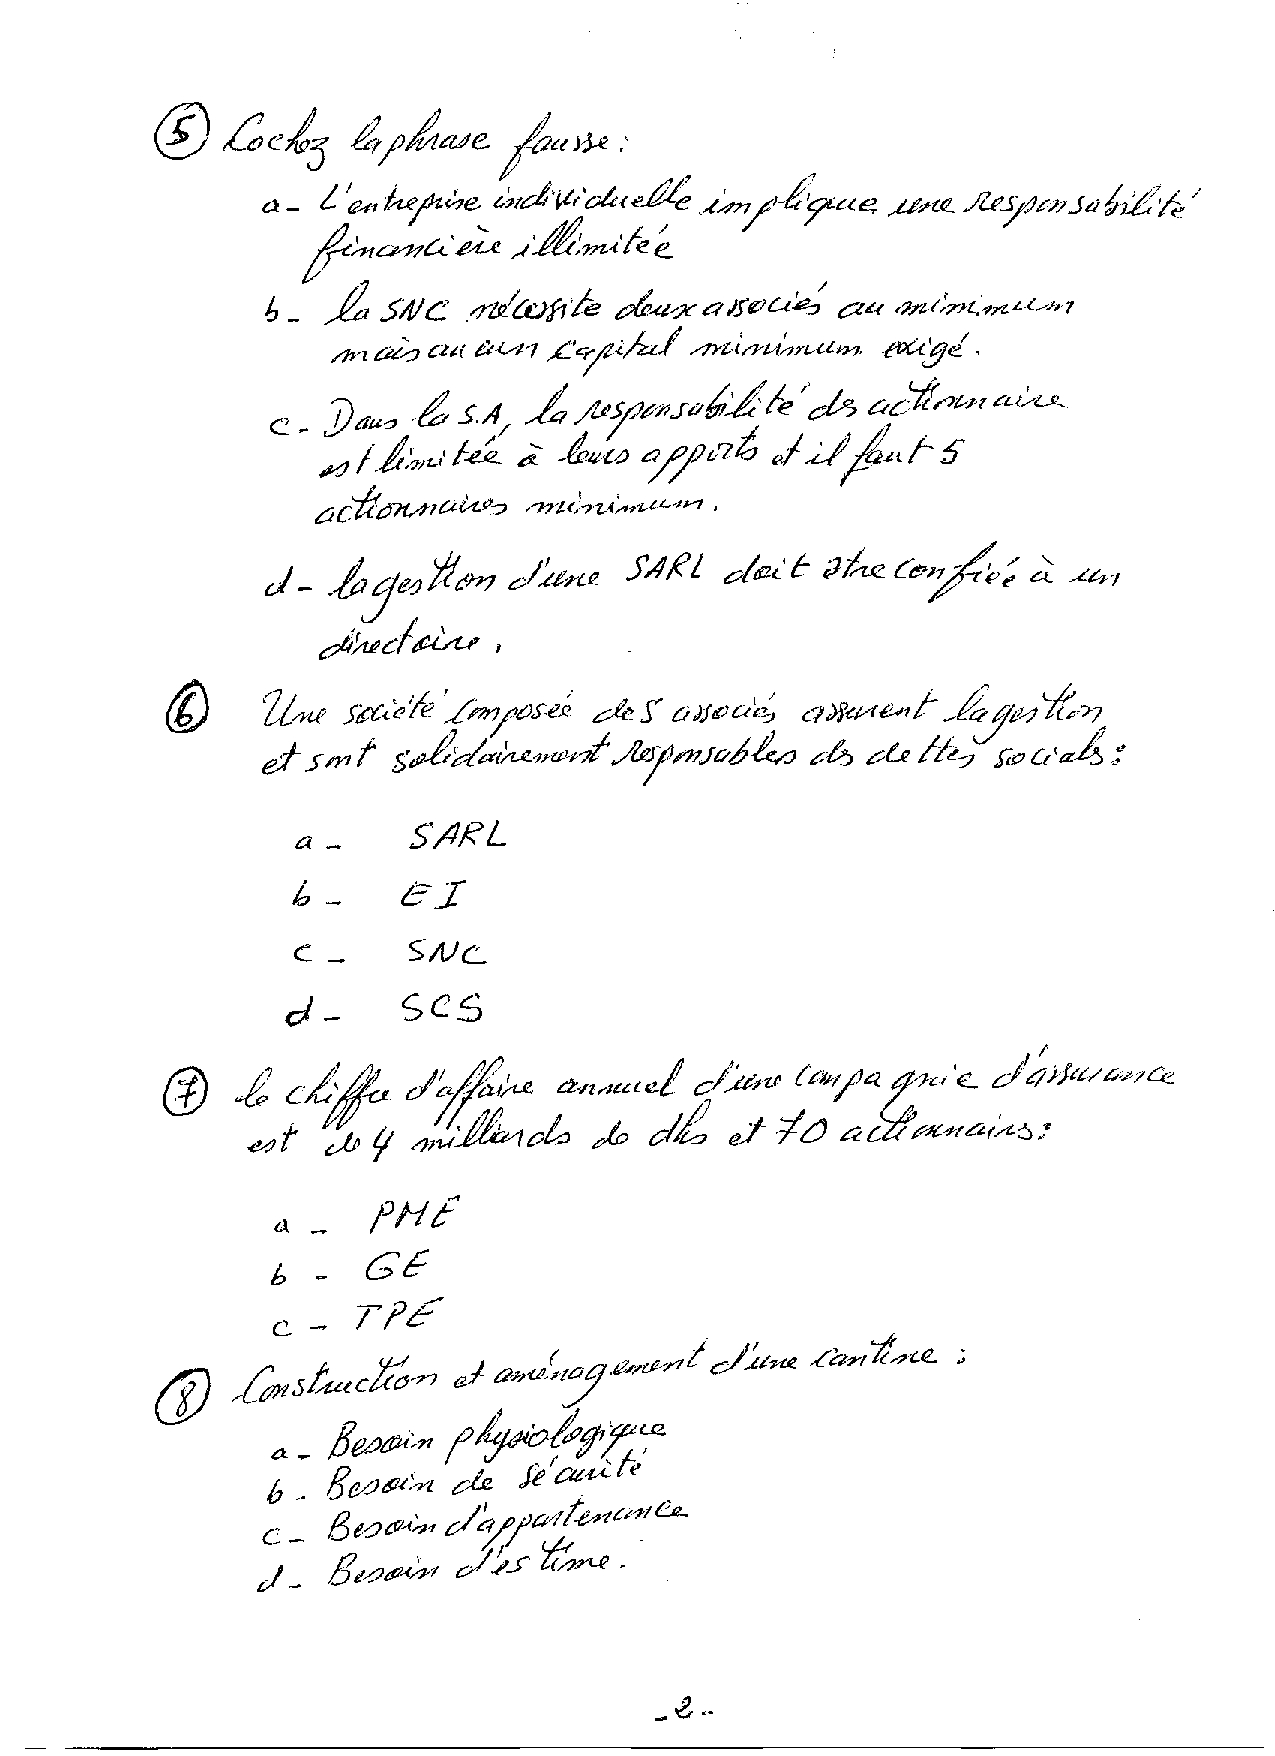 ⑤ Cochez la phrase fausse :
a- L'entreprise individuelle implique une responsabilité
financière illimitée
b- la SNC nécessite deux associés au minimum
mais aucun capital minimum exigé.
c- Dans la S.A, la responsabilité des actionnaire
est limitée à leurs apports et il faut 5
actionnaires minimum.
d- la gestion d'une SARL doit être confiée à un
directoire.
⑥ Une société composée de 5 associés assurent la gestion
et sont solidairement responsables des dettes sociales :
a- SARL
b- EI
c- SNC
d- SCS
⑦ le chiffre d'affaire annuel d'une compagnie d'assurance
est de 4 milliards de dhs et 70 actionnaires :
a- PME
b- GE
c- TPE
⑧ Construction et aménagement d'une cantine :
a- Besoin physiologique
b- Besoin de sécurité
c- Besoin d'appartenance
d- Besoin d'estime.
-2-